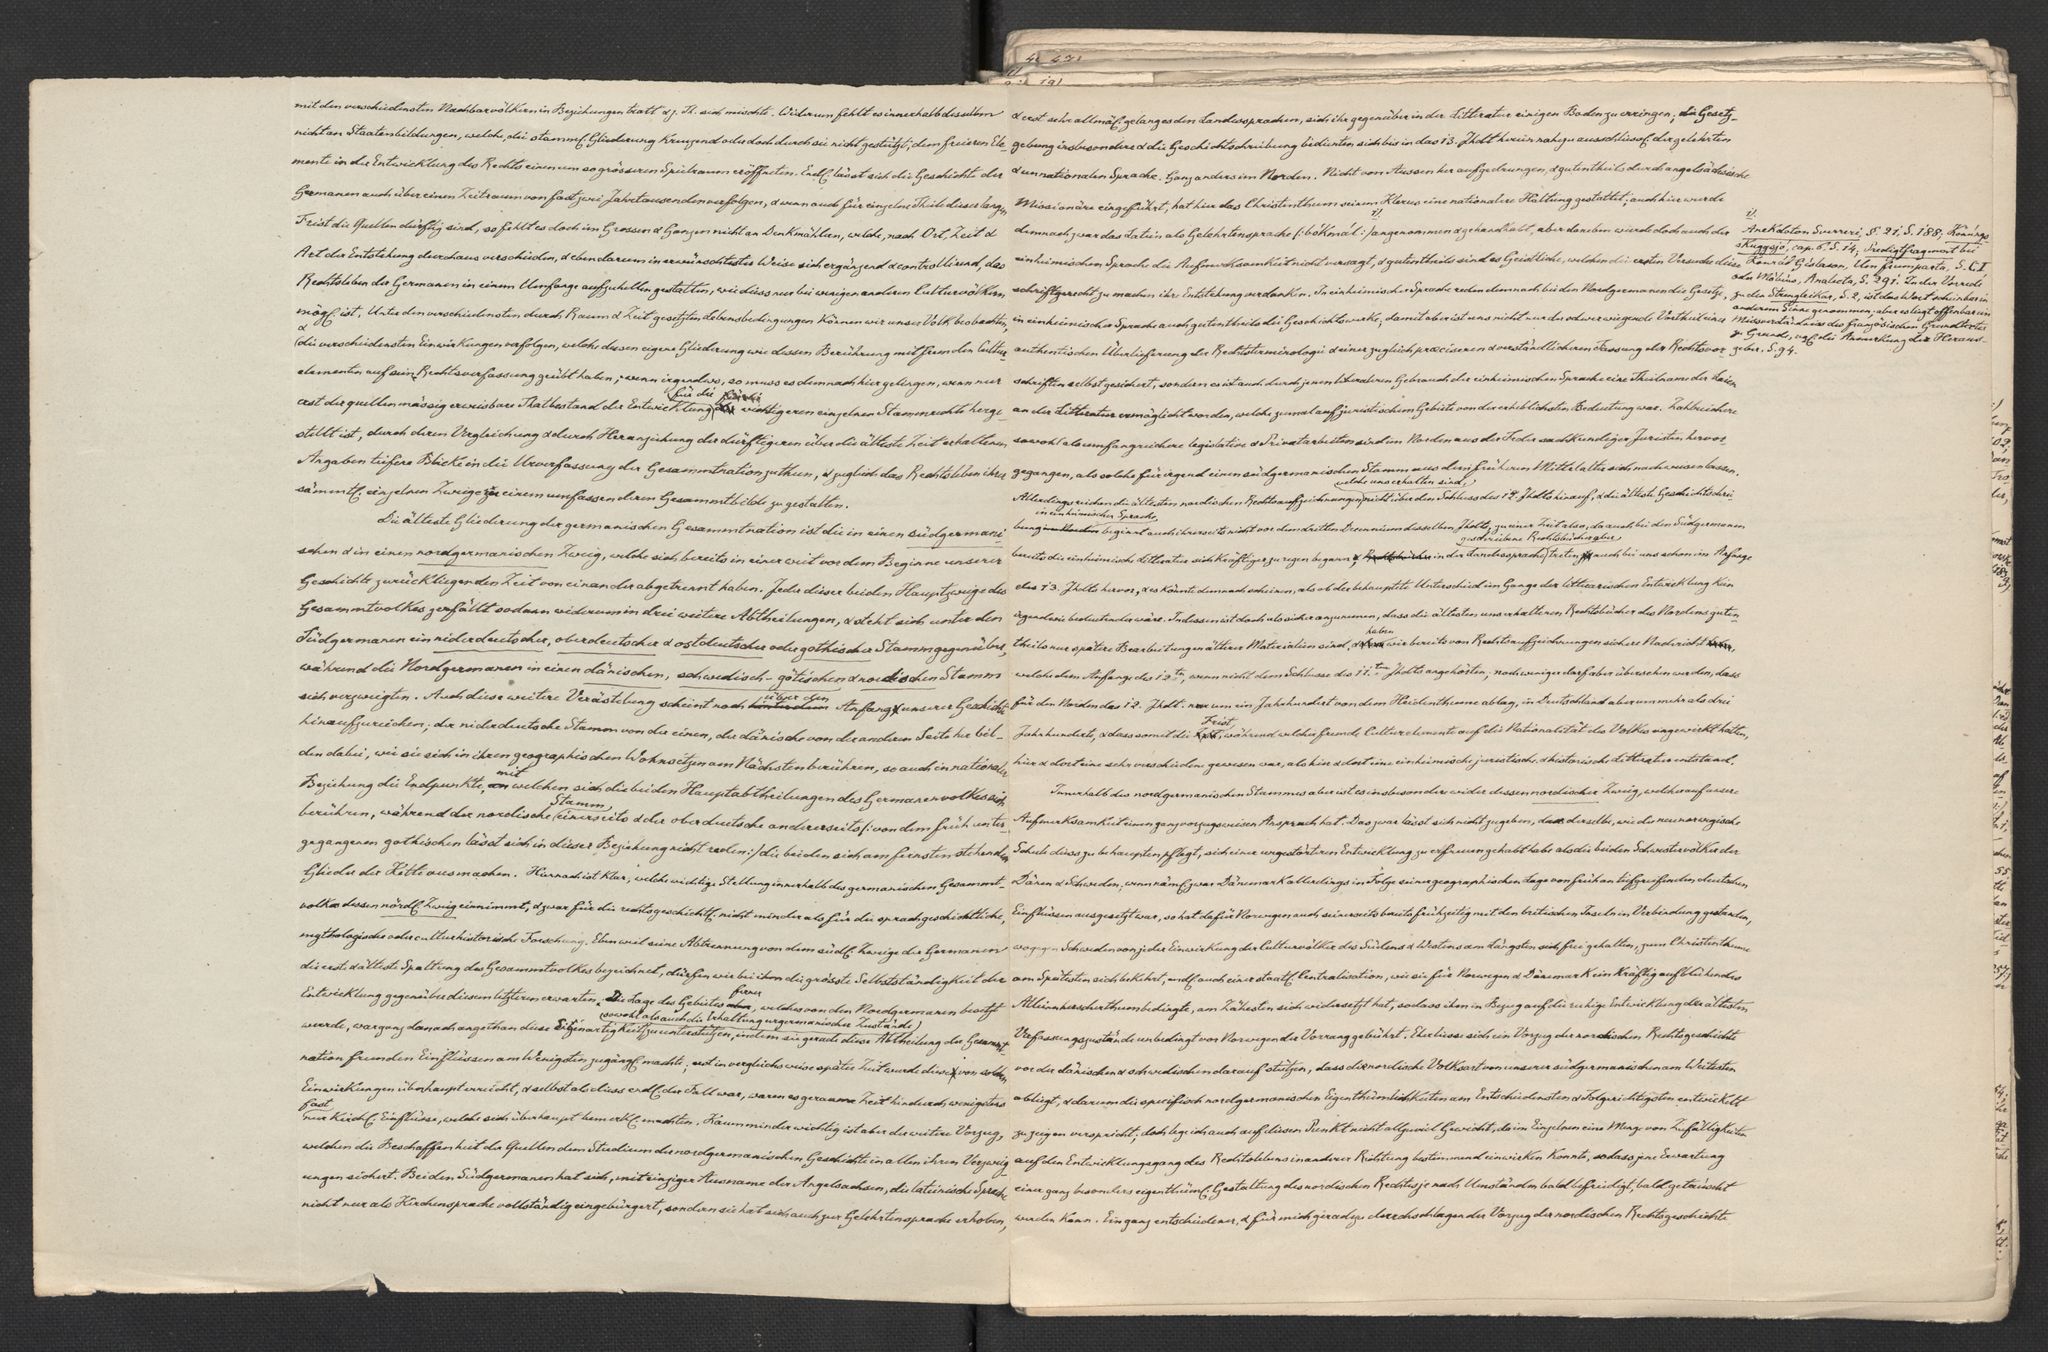 mit den verschiedensten Nachbarvölkern in Beziehungen tratt & z. Th. sich mischte. Widerum fehlt es innerhalb desselben
nicht an Staatenbildungen, welche, die stamml. Gliederung kreuzend oder doch durch sie nicht gestützt, dem freieren Ele-
mente in der Entwicklung des Rechts einen um so grösseren Spielraum eröffneten. Endl. lässt sich die Geschichte der
Germanen auch über einen Zeitraum von fast zwei Jahrtausenden verfolgen, & wenn auch für einzelne Theile dieser langen
Frist die Quellen dürftig sind, so fehlt es doch im Grossen & Ganzen nicht an Denkmählern, welche, nach Ort, Zeit &
Art der Entstehung durchaus verschieden, & eben darum in erwünschtester Weise sich ergänzend & controllirend, das
Rechtsleben der Germanen in einem Umfange aufzuhellen gestatten, wie diess nur bei wenigen anderen Culturvölkern
mögl. ist. Unter den verschiedensten durch Raum & Zeit gesetzten Lebensbedingungen können wir unser Volk beobachten,
& die verschiedensten Einwirkungen verfolgen, welche dessen eigene Gliederung wie dessen Berührung mit fremden Cultur-
elementen auf seine Rechtsverfassung geübt haben; wenn irgendwo, so muss es demnach hier gelingen, wenn nur
für die
erst der quellenmässig erweisbare Thatbestand der Entwicklung wichtigeren einzelnen Stammrechte herge-
stellt ist, durch deren Vergleichung & durch Heranziehung der dürftigeren über die älteste Zeit erhaltenen
Angaben tiefere Blicke in die Urverfassung der Gesammtnation zu thun, & zugleich das Rechtsleben ihrer
sämmtl. einzelnen Zweige zu einem umfassenderen Gesammtbilde zu gestalten.
Die älteste Gliederung der germanischen Gesammtnation ist die in einen südgermani-
schen & in einen nordgermanischen Zweig, welche sich bereits in einer weit vor dem Beginne unserer
Geschichte zurückliegenden Zeit von einander abgetrennt haben. Jeder dieser beiden Hauptzweige des
Gesammtvolkes zerfällt sodann widerum in drei weitere Abtheilungen, & steht sich unter den
Südgermanen ein niderdeutscher, oberdeutscher & ostdeutscher oder gothischer Stamm gegenüber,
während die Nordgermanen in einen dänischen, schwedisch-götischen & nordischen Stamm
über den
sich verzweigten. Auch diese weitere Verästelung scheint noch hinter dem Anfang unserer Geschichte
hinaufzureichen; der niderdeutsche Stamm von der einen, der dänische von der anderen Seite her bil-
den dabei, wie sie sich in ihren geographischen Wohnsitzen am Nächsten berühren, so auch in nationaler
mit
Beziehung die Endpunkte, an welchen sich die beiden Hauptabtheilungen des Germanenvolkes sich
Stamm
berühren, während der nordische einerseits & der oberdeutsche andererseits (: von dem früh unter-
gegangenen gothischen lässt sich in dieser Beziehung nicht reden :) die beiden sich am fernsten stehenden
Glieder der Kette ausmachen. Hiernach ist klar, welche wichtige Stellung innerhalb des germanischen Gesammt-
volkes dessen nördl. Zweig einnimmt, & zwar für die rechtsgeschichtl. nicht minder als für die sprachgeschichtliche,
mythologische oder culturhistorische Forschung. Eben weil seine Abtrennung von dem südl. Zweige der Germanen
die erste & älteste Spaltung des Gesammtvolkes bezeichnet, dürfen wir bei ihm die grösste Selbstständigkeit der
ferner
Entwicklung gegenüber diesem letzteren erwarten. Die Lage des Gebietes, welches von den Nordgermanen besetzt
sowohl als auch die Erhaltung urgermanischer Zustände
wurde, war ganz danach angethan diese Eigenartigkeit zu unterstützen, indem sie gerade diese Abtheilung der Gesammt-
nation fremden Einflüssen am Wenigsten zugängl. machte; erst in vergleichsweise später Zeit wurde diese von solchen
Einwirkungen überhaupt erreicht, & selbst als diess endl. der Fall war, waren es geraume Zeit hindurch wenigstens
fast
nur kirchl. Einflüsse, welche sich überhaupt bemerkl. machten. Kaum minder wichtig ist aber der weitere Vorzug,
welchen die Beschaffenheit der Quellen dem Studium der nordgermanischen Geschichte in allen ihren Verzweig-
ungen sichert. Bei den Südgermanen hat sich, mit einziger Ausname der Angelsachsen, die lateinische Sprache
nicht nur als Kirchensprache vollständig eingebürgert, sondern sie hat sich auch zur Gelehrtensprache erhoben,
& erst sehr allmäl. gelang es den Landessprachen, sich ihr gegenüber in der Litteratur einigen Boden zu erringen; die Gesetz-
gebung insbesondere & die Geschichtschreibung bedienten sich bis in das 13. Jhdt herein nahezu ausschliessl. der gelehrten
& unnationalen Sprache. Ganz anders im Norden. Nicht von Aussen her aufgedrungen, & gutentheils durch angelsächsische
Missionäre eingeführt, hat hier das Christenthum seinem Klerus eine nationalere Haltung gestattet; auch hier wurde
demnach zwar das Latein als Gelehrtensprache (: bókmál :) 1) angenommen & gehandhabt, aber daneben wurde doch auch der
einheimischen Sprache die Aufmerksamkeit nicht versagt, & gutentheils sind es Geistliche, welchen die ersten Versuche diese
schriftgerecht zu machen ihre Entstehung verdanken. In einheimischer Sprache reden demnach bei den Nordgermanen die Gesetze,
in einheimischer Sprache auch gutentheils die Geschichtswerke; damit aber ist uns nicht nur der schwerwiegende Vortheil einer
authentischen Überlieferung der Rechtsterminologie & einer zugleich präciseren & verständlicheren Fassung der Rechtsvor-
schriften selbst gesichert, sondern es ist auch durch jenen liberaleren Gebrauch der einheimischen Sprache eine Theilname der Laien
an der Litteratur ermöglicht worden, welche zumal auf juristischem Gebiete von der erheblichsten Bedeutung war. Zahlreichere
sowohl als umfangreichere legislative & Privatarbeiten sind im Norden aus der Feder sachkundiger Juristen hervor-
gegangen, als solche für irgend einen südgermanischen Stamm aus dem früheren Mittelalter sich nachweisen lassen.
welche uns erhalten sind,
Allerdings reichen die ältesten nordischen Rechtsaufzeichnungen nicht über den Schluss des 12. Jhdts hinauf, & die älteste Geschichtschrei-
in einheimischer Sprache,
bung im Norden beginnt auch ihrerseits nicht vor dem dritten Decennium desselben Jhdts, zu einer Zeit also, da auch bei den Südgermanen
geschriebene Rechtsbücher aber
bereits die einheimische Litteratur sich kräftiger zu regen begann; in der Landessprache treten auch bei uns schon im Anfange
des 13. Jhdts hervor, & es könnte demnach scheinen, als ob der behauptete Unterschied im Gange der litterarischen Entwicklung kein
irgendwie bedeutender wäre. Indessen ist doch als sicher anzunemen, dass die ältesten uns erhaltenen Rechtsbücher des Nordens guten-
haben
theils nur spätere Bearbeitungen älterer Materialien sind, & wir bereits von Rechtsaufzeichnungen sichere Nachricht,
welche dem Anfange des 12ten, wenn nicht dem Schlusse des 11ten Jhdts angehörten; noch weniger darf aber übersehen werden, dass
für den Norden das 12. Jhdt. nur um ein Jahrhundert von dem Heidenthume ablag, in Deutschland aber um mehr als drei
Frist,
Jahrhunderte, & dass somit die, während welcher fremde Culturelemente auf die Nationalität des Volkes eingewirkt hatten,
hier & dort eine sehr verschiedene gewesen war, als hier & dort eine einheimische juristische & historische Litteratur entstand.
Innerhalb des nordgermanischen Stammes aber ist es insbesondere wider dessen nordischer Zweig, welcher auf unsere
Aufmerksamkeit einen ganz vorzugsweisen Anspruch hat. Das zwar lässt sich nicht zugeben, dass derselbe, wie die neunorwegische
Schule diess zu behaupten pflegt, sich einer ungestörteren Entwicklung zu erfreuen gehabt habe als die beiden Schwestervölker der
Dänen & Schweden; wenn näml. zwar Dänemark allerdings in Folge seiner geographischen Lage von früh an tiefgreifenden deutschen
Einflüssen ausgesetzt war, so hat dafür Norwegen auch seinerseits bereits frühzeitig mit den britischen Inseln in Verbindung gestanden,
wogegen Schweden von jeder Einwirkung der Culturvölker des Südens & Westens am Längsten sich frei gehalten, zum Christenthume
am Spätesten sich bekehrt, endl. auch einer staatl. Centralisation, wie sie für Norwegen & Dänemark ein kräftig aufblühendes
Alleinherscherthum bedingte, am Zähesten sich widersetzt hat, sodass ihm in Bezug auf die ruhige Entwicklung der ältesten
Verfassungszustände unbedingt vor Norwegen der Vorrang gebührt. Eher liesse sich ein Vorzug der nordischen Rechtsgeschichte
vor der dänischen & schwedischen darauf stützen, dass die nordische Volksart von unserer südgermanischen am Weitesten
abliegt, & darum die specifisch nordgermanischen Eigenthümlichkeiten am Entschiedensten & Folgerichtigsten entwickelt
zu zeigen verspricht; doch lege ich auch auf diesen Punkt nicht allzuviel Gewicht, da im Einzelnen eine Menge von Zufälligkeiten
auf den Entwicklungsgang des Rechtslebens in anderer Richtung bestimmend einwirken konnte, sodass jene Erwartung
einer ganz besonders eigenthüml. Gestaltung des nordischen Rechts je nach Umständen bald befriedigt, bald getäuscht
werden kann. Ein ganz entschiedener, & für mich geradezu durchschlagender Vorzug der nordischen Rechtsgeschichte
1)
Anekdoton Sverreri, §. 21, S. 188; Konúngs-
skuggsjá, cap. 6, S. 14; Predigtfragment bei
Konráð Gíslason, Um frumparta, S. CI
oder Möbius, Analecta, S. 291. In der Vorrede
zu den Strengleikar, S. 2, ist das Wort scheinbar in
anderem Sinne genommen; aber es liegt offenbar ein
Missverständniss des französischen Grundtextes
zu Grunde, vgl. die Anmerkung der Heraus-
geber. S. 94.